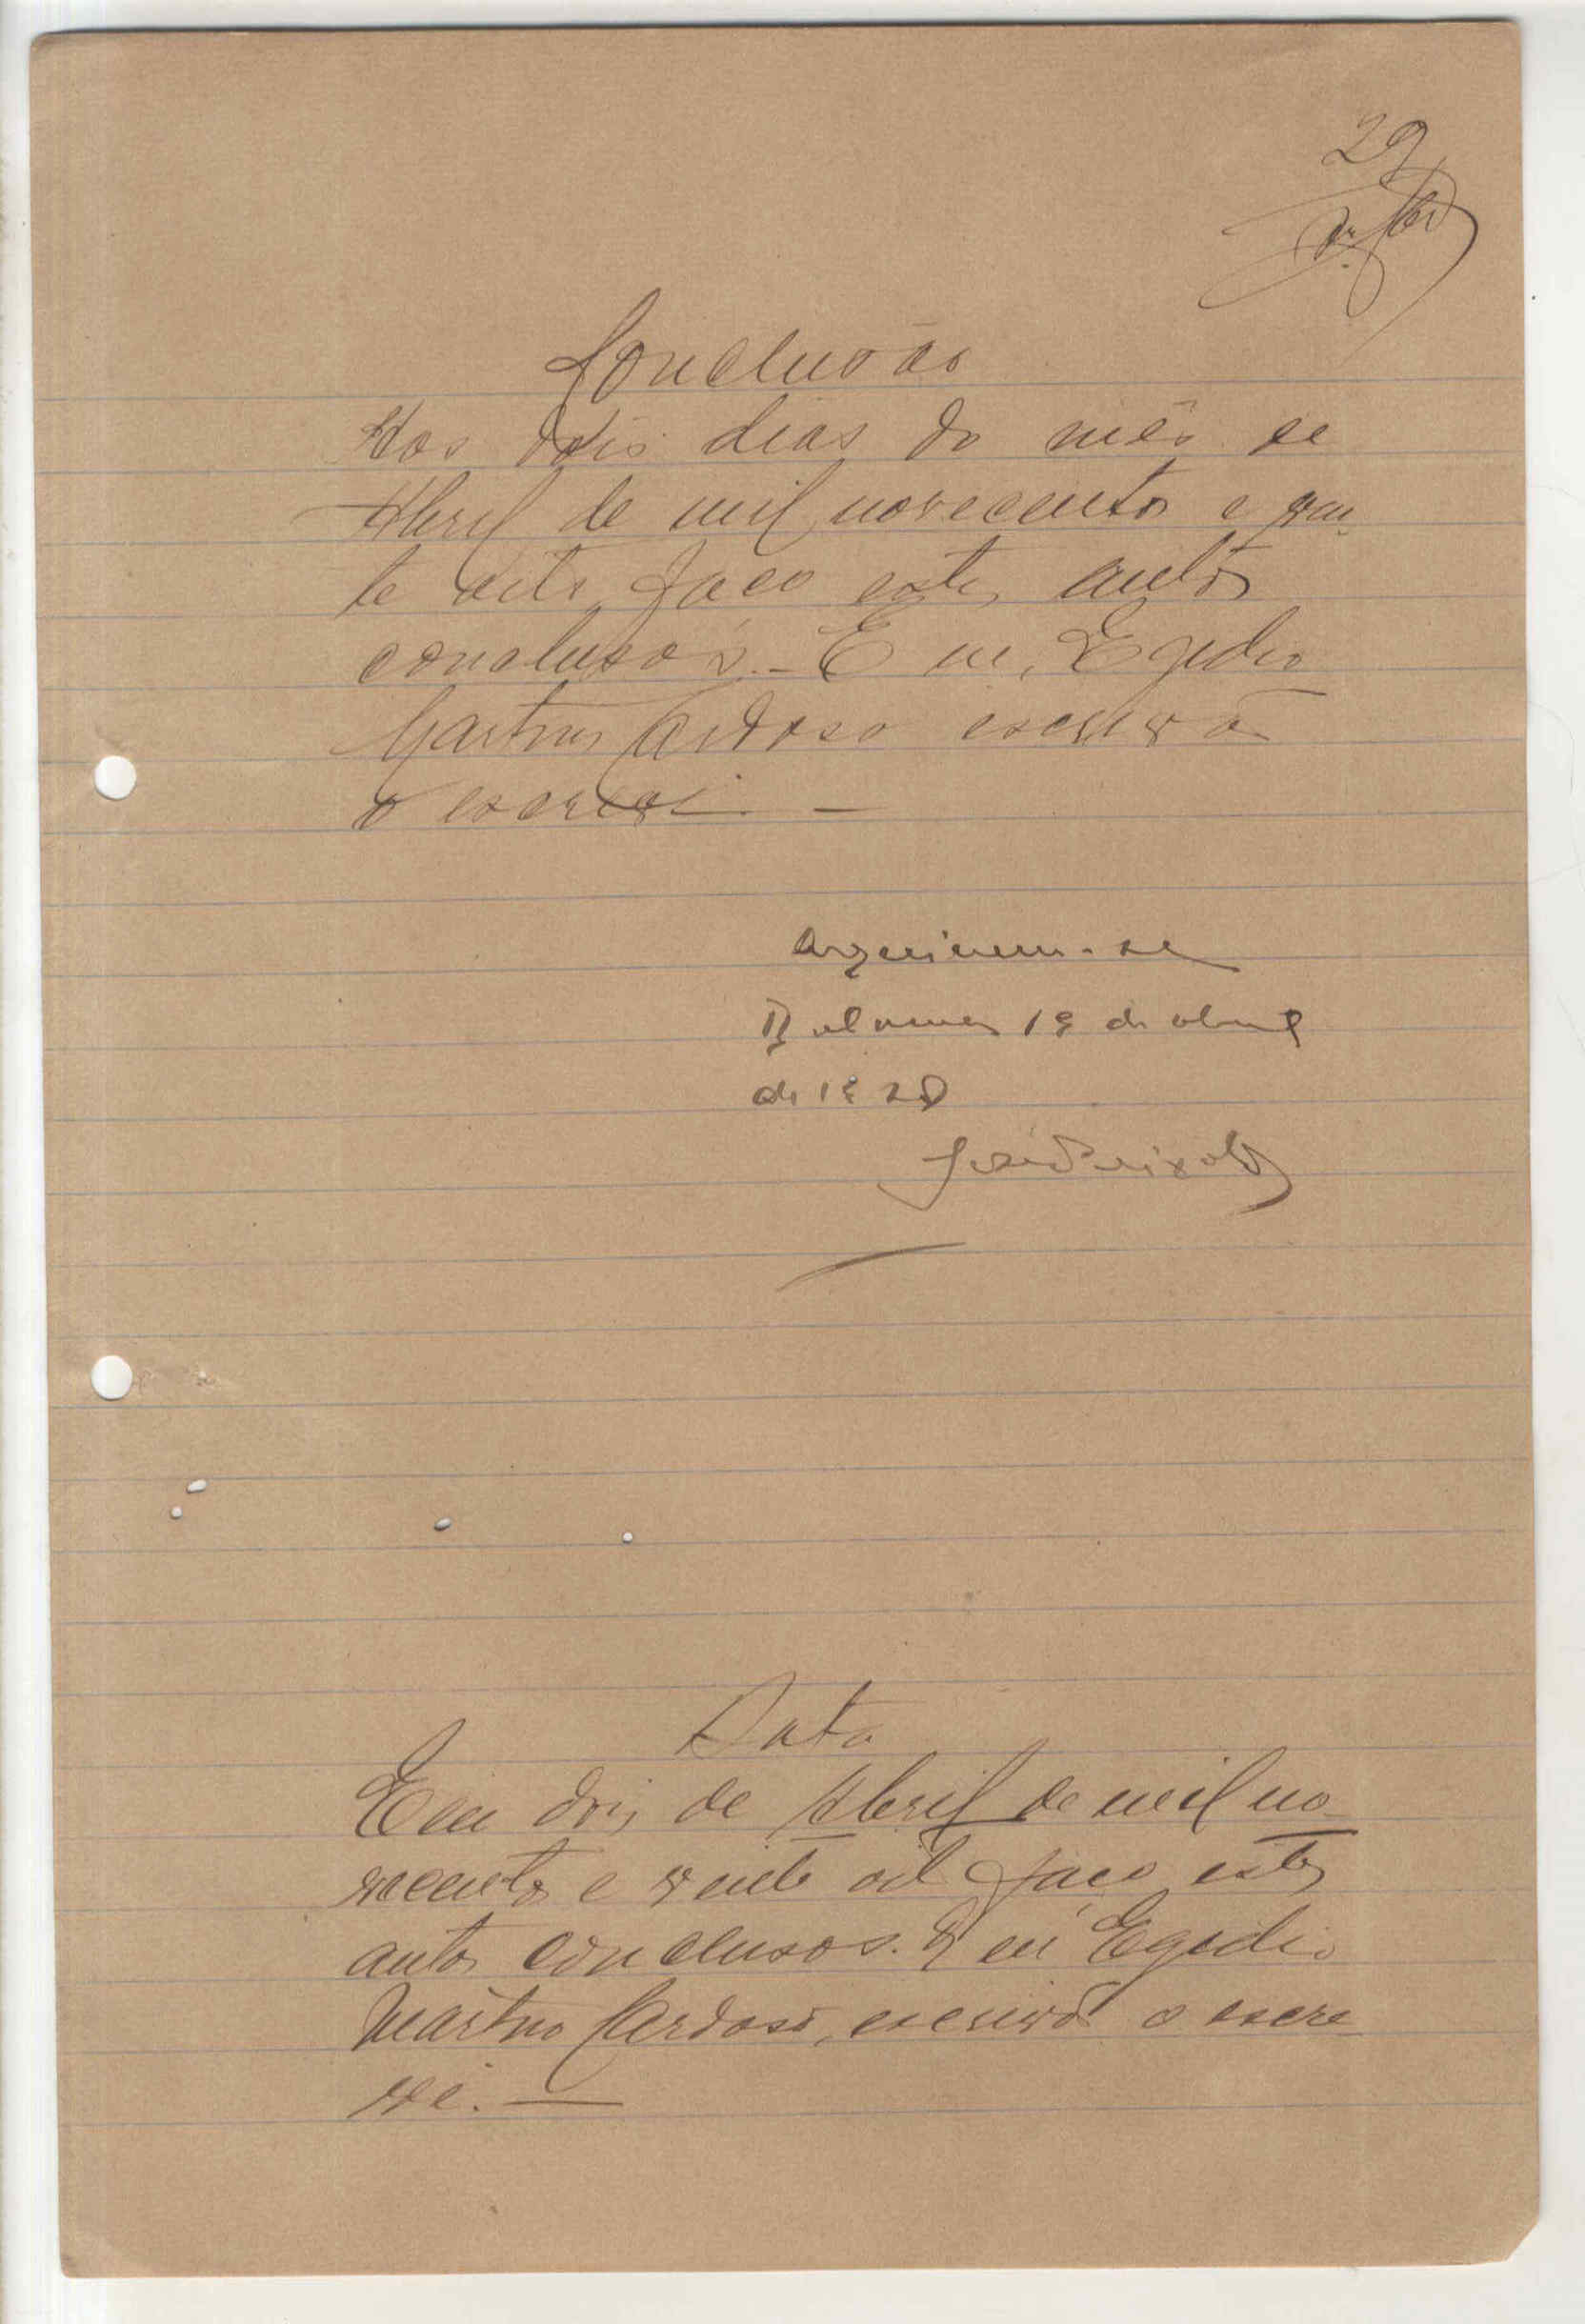 29
Conclusão
Aos dois dias do mês de
Abril de mil novecentos e vin-
te oito faço estes autos
conclusos. - E eu, Egidio
Martins Cardoso escrivão
o escrevi. —
de abril
de 1928
José Peixoto
Data
Em dois de Abril de mil no-
vecentos e vinte oito faço estes
autos conclusos. E eu Egidio
Martins Cardoso, escrivão o escre
vi. —